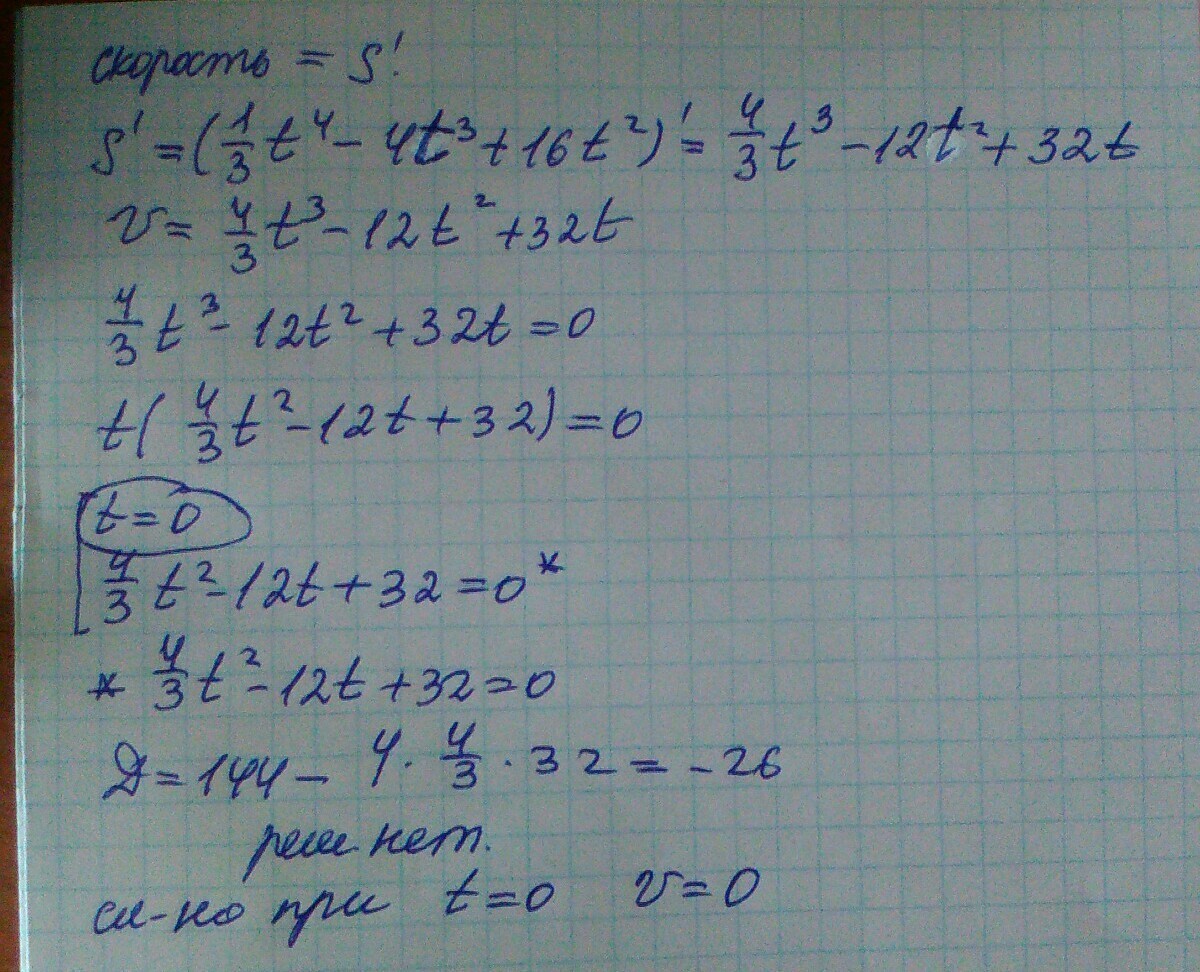 скорость = S'.
S' = (1/3 t⁴ - 4t³ + 16t²)' = 4/3 t³ - 12t² + 32t
v = 4/3 t³ - 12t² + 32t
4/3 t³ - 12t² + 32t = 0
t( 4/3 t² - 12t + 32) = 0
t = 0
4/3 t² - 12t + 32 = 0 *
* 4/3 t² - 12t + 32 = 0
Д = 144 - 4 · 4/3 · 32 = -26
реш нет.
сл-но при t = 0 v = 0